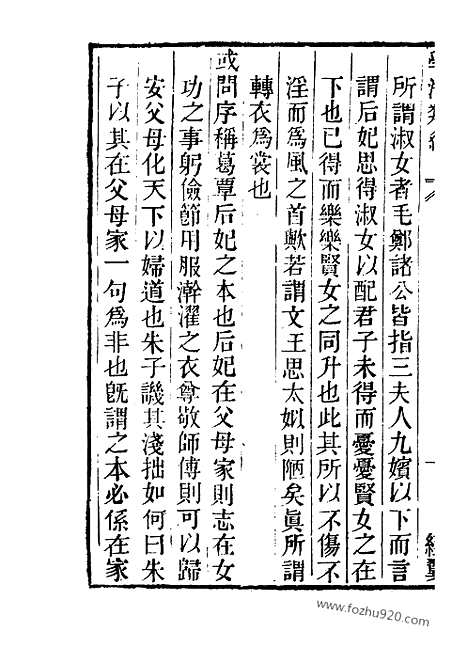 所謂淑女者毛鄭諸公皆指三夫人九嬪以下而言
謂后妃思得淑女以配君子未得而憂憂賢女之在
下也已得而樂樂賢女之同升也此其所以不傷不
淫而爲風之首歟若謂文王思太姒則陋矣眞所謂
轉衣爲裳也
或問序稱葛覃后妃之本也后妃在父母家則志在女
功之事躬儉節用服澣濯之衣尊敬師傅則可以歸
安父母化天下以婦道也朱子譏其淺拙如何曰朱
子以其在父母家一句爲非也旣謂之本必係在家
www.fozhu920.com